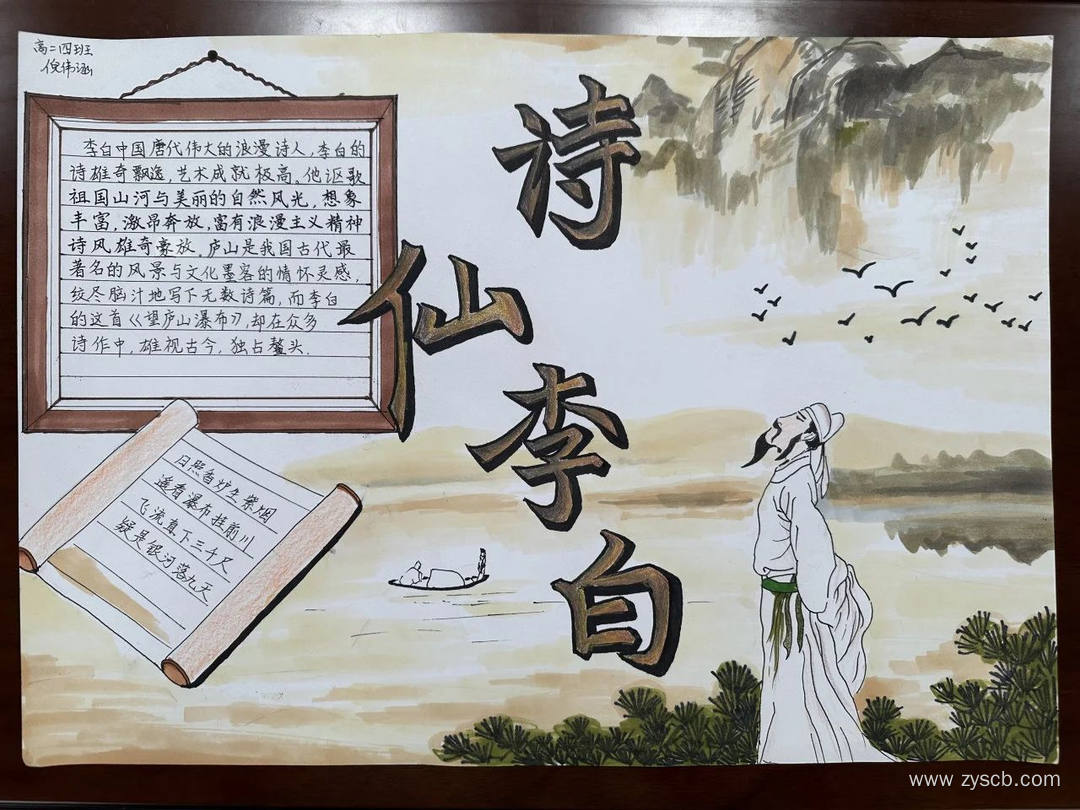 高二四班
倪伟涵
李白中国唐代伟大的浪漫诗人,李白的
诗雄奇飘逸,艺术成就极高。他讴歌
祖国山河与美丽的自然风光,想象
丰富,激昂奔放,富有浪漫主义精神
诗风雄奇豪放。庐山是我国古代最
著名的风景与文化墨客的情怀灵感,
绞尽脑汁地写下无数诗篇,而李白
的这首《望庐山瀑布》,却在众多
诗作中,雄视古今,独占鳌头.
诗仙李白
日照香炉生紫烟
遥看瀑布挂前川
飞流直下三千尺
疑是银河落九天
www.zyscb.com